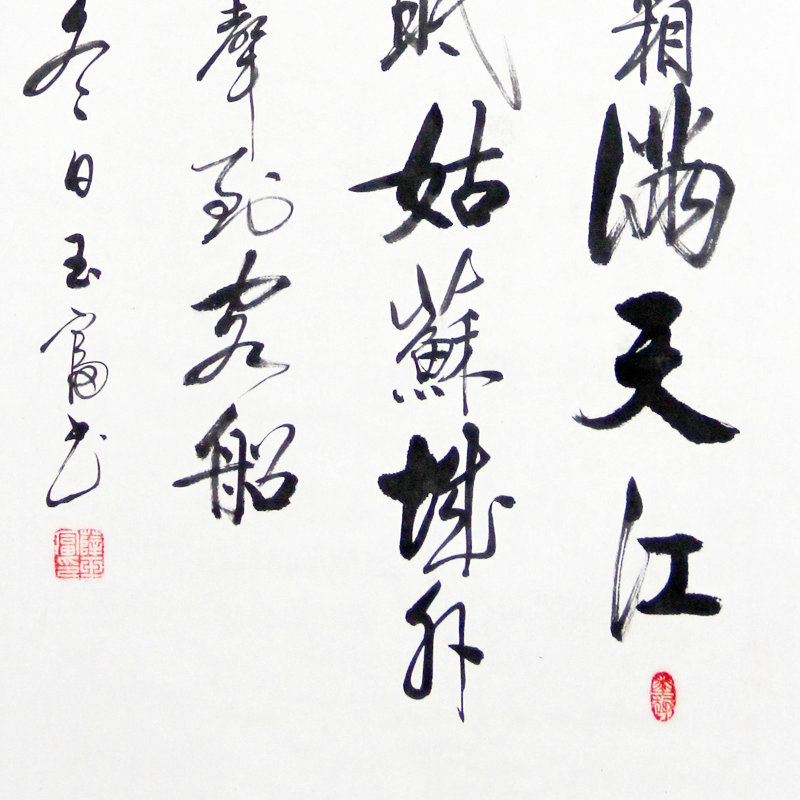 霜满天江
眠姑蘇城外
聲到客船
冬日玉富书